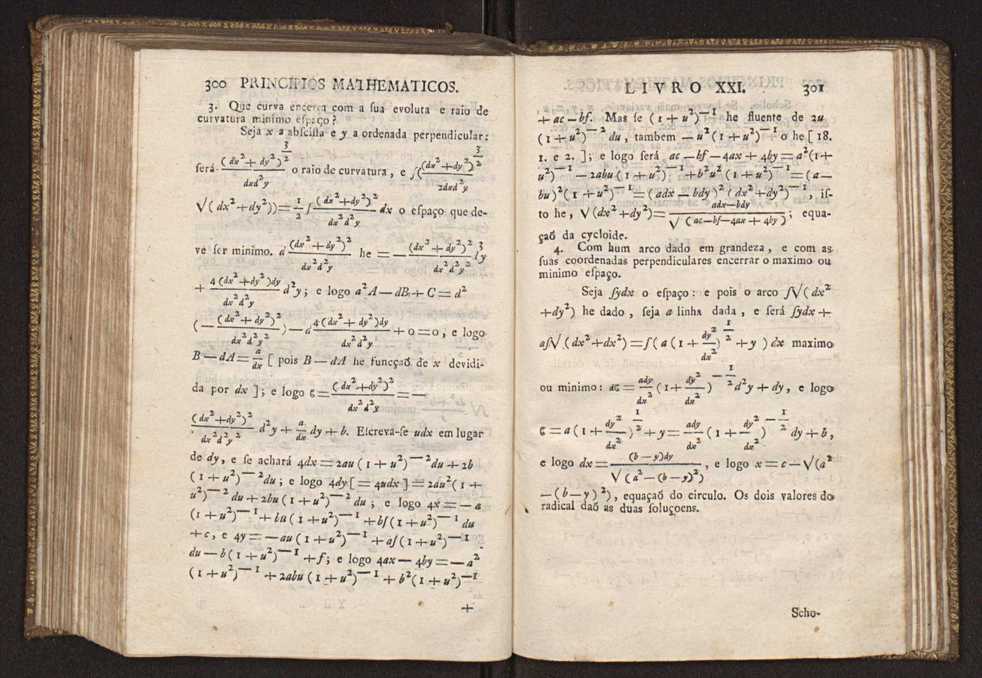 300 PRINCIPIOS MATHEMATICOS.
3. Que curva encerra com a ſua evoluta e raio de
curvatura minimo eſpaço?
Seja x a abſciſſa e y a ordenada perpendicular:
ſerá (dx² + dy²)^{3/2} / dxd²y o raio de curvatura, e ∫((dx² + dy²)^{3/2} / 2dxd²y
√(dx² + dy²)) = 1/2 ∫ (dx² + dy²)² / dx²d²y dx o eſpaço que de-
ve ſer minimo. d (dx² + dy²)² / dx²d²y he = — (dx² + dy²)² / dx²d²y² d³y
+ 4(dx² + dy²)dy / dx²d²y d²y; e logo a²A — dB + C = d²
(— (dx² + dy²)² / dx²d²y²) — d 4(dx² + dy²)dy / dx²d²y + 0 = 0, e logo
B — dA = a/dx [ pois B — dA he funcçaõ de x devidi-
da por dx ]; e logo ϭ = (dx² + dy²)² / dx²d²y = —
(dx² + dy²)² / dx²d²y² d²y + a/dx dy + b. Eſcreva-ſe udx em lugar
de dy, e ſe achará 4dx = 2au (1 + u²)^{—2} du + 2b
(1 + u²)^{—2} du; e logo 4dy [ = 4udx ] = 2au² (1 +
u²)^{—2} du + 2bu (1 + u²)^{—2} du; e logo 4x = — a
(1 + u²)^{—1} + bu (1 + u²)^{—1} + b∫(1 + u²)^{—1} du
+ c, e 4y = — au (1 + u²)^{—1} + a∫(1 + u²)^{—1}
du — b (1 + u²)^{—1} + f; e logo 4ax — 4by = — a²
(1 + u²)^{—1} + 2abu (1 + u²)^{—1} + b² (1 + u²)^{—1}
+
LIVRO XXI. 301
+ ac — bf. Mas ſe (1 + u²)^{—1} he fluente de 2u
(1 + u²)^{—2} du, tambem — u² (1 + u²)^{—1} o he [ 18.
1. e 2. ]; e logo ſerá ac — bf — 4ax + 4by = a² (1 +
u²)^{—1} — 2abu (1 + u²)^{—1} + b²u² (1 + u²)^{—1} = (a —
bu)² (1 + u²)^{—1} = (adx — bdy)² (dx² + dy²)^{—1}, iſ-
to he, √(dx² + dy²) = adx — bdy / √(ac — bf — 4ax + 4by); equa-
çaõ da cycloide.
4. Com hum arco dado em grandeza, e com as
ſuas coordenadas perpendiculares encerrar o maximo ou
minimo eſpaço.
Seja ∫ydx o eſpaço: e pois o arco ∫√(dx²
+ dy²) he dado, ſeja a linha dada, e ſerá ∫ydx +
a∫√(dx² + dx²) = ∫(a (1 + dy²/dx²)^{1/2} + y) dx maximo
ou minimo: dϭ = ady/dx² (1 + dy²/dx²)^{—1/2} d²y + dy, e logo
ϭ = a (1 + dy²/dx²)^{1/2} + y = ady/dx² (1 + dy²/dx²)^{—1/2} dy + b,
e logo dx = (b — y)dy / √(a² — (b — y)²), e logo x = c — √(a²
— (b — y)²), equaçaõ do circulo. Os dois valores do
radical daõ as duas ſoluçoens.
Scho-